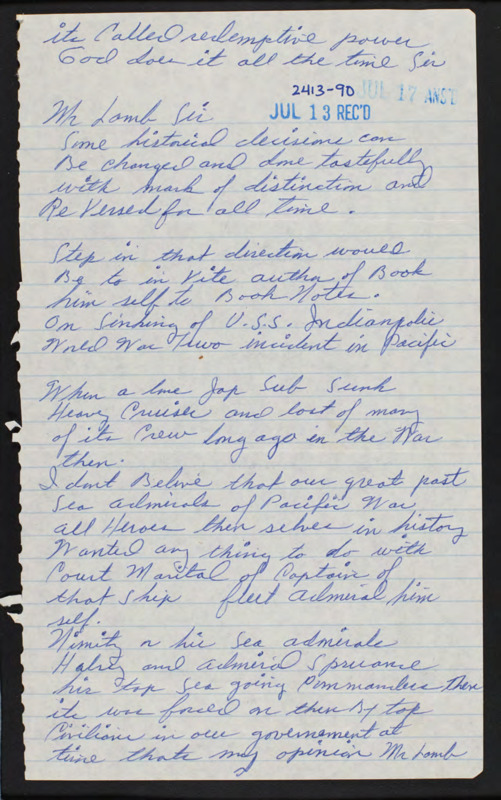 its Called redemptive power
God does it all the time Sir
2413-90 JUL 17 ANS'D
JUL 13 REC'D
Mr Lamb Sir
Some historical decisions can
Be changed and done tastefully
with mark of distinction and
Re Versed for all time.
Step in that direction would
Be to in Vite author of Book
him self to Book Notes.
On Sinking of U.S.S. Indianpolis
World War Two incident in Pacific
When a lone Jap Sub Sunk
Heavy Cruiser and lost of many
of its Crew long ago in the War
then.
I don't Belive that our great past
Sea admirals of Pacific War
all Heroes them selves in history
Wanted any thing to do with
Court Marital of Captain of
that Ship fleet admiral him
self.
Nimitz n his Sea admirals
Halsey and admiral Spruance
his top Sea going Commanders then
its was forced on them By top
Civilians in our government at
time thats my opinion Mr Lamb